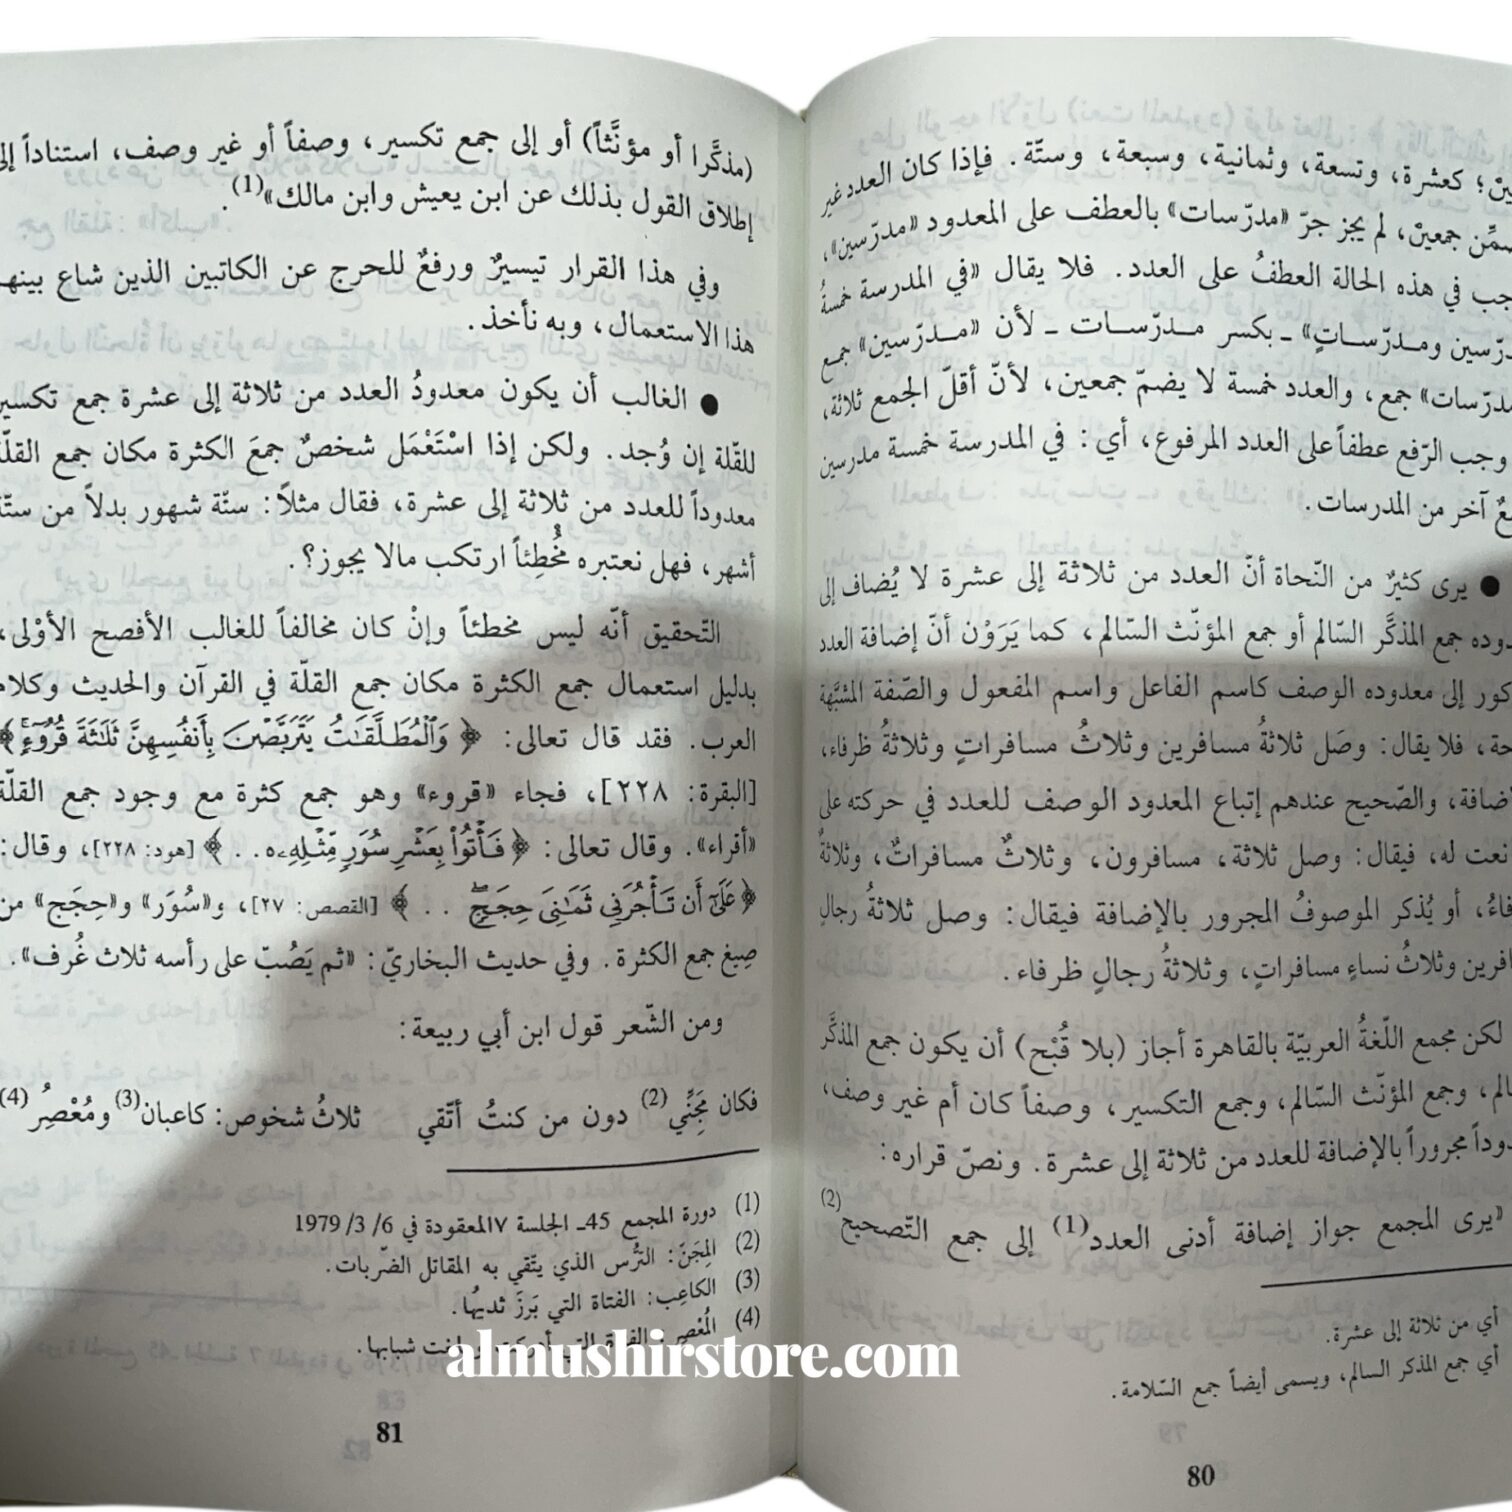 ين؛ كعشرة، وتسعة، وثمانية، وسبعة، وستّة. فإذا كان العدد غير
جمعين، لم يجز جرّ «مدرّسات» بالعطف على المعدود «مدرّسين»،
في هذه الحالة العطفُ على العدد. فلا يقال «في المدرسة خمسةُ
ومدرّساتٍ» ـ بكسر مدرّسات ـ لأن «مدرّسين» جمع
جمع، والعدد خمسة لا يضمّ جمعين، لأنّ أقلّ الجمع ثلاثة،
وجب الرّفع عطفاً على العدد المرفوع، أي: في المدرسة خمسة مدرسين
آخر من المدرسات.
● يرى كثيرٌ من النّحاة أنّ العدد من ثلاثة إلى عشرة لا يُضاف إلى
جمع المذكَّر السّالم أو جمع المؤنّث السّالم، كما يَرَوْن أنّ إضافة العدد
إلى معدوده الوصف كاسم الفاعل واسم المفعول والصّفة المشبَّهة
فلا يقال: وصَل ثلاثةُ مسافرين وثلاثُ مسافراتٍ وثلاثةُ ظرفاء،
والصّحيح عندهم إتباع المعدود الوصف للعدد في حركته على
نعت له، فيقال: وصل ثلاثة، مسافرون، وثلاثٌ مسافراتٌ، وثلاثةٌ
أو يُذكر الموصوفُ المجرور بالإضافة فيقال: وصل ثلاثةُ رجالٍ
وثلاثُ نساءٍ مسافراتٍ، وثلاثةُ رجالٍ ظرفاء.
لكن مجمع اللّغةُ العربيّة بالقاهرة أجاز (بلا قُبْح) أن يكون جمع المذكَّر
وجمع المؤنّث السّالم، وجمع التكسير، وصفاً كان أم غير وصف،
مجروراً بالإضافة للعدد من ثلاثة إلى عشرة. ونصّ قراره:
«يرى المجمع جواز إضافة أدنى العدد(1) إلى جمع التّصحيح(2)
أي من ثلاثة إلى عشرة.
أي جمع المذكر السالم، ويسمى أيضاً جمع السّلامة.
80
(مذكَّرا أو مؤنَّثاً) أو إلى جمع تكسير، وصفاً أو غير وصف، استناداً إلى
إطلاق القول بذلك عن ابن يعيش وابن مالك»(1).
وفي هذا القرار تيسيرٌ ورفعٌ للحرج عن الكاتبين الذين شاع بينهم
هذا الاستعمال، وبه نأخذ.
● الغالب أن يكون معدودُ العدد من ثلاثة إلى عشرة جمع تكسير
للقّلة إن وُجد. ولكن إذا اسْتَعْمَل شخصٌ جمعَ الكثرة مكان جمع القلّة
معدوداً للعدد من ثلاثة إلى عشرة، فقال مثلاً: ستّة شهور بدلاً من ستّة
أشهر، فهل نعتبره مُخْطِئاً ارتكب مالا يجوز؟.
التّحقيق أنّه ليس مخطئاً وإنْ كان مخالفاً للغالب الأفصح الأوْلى،
بدليل استعمال جمع الكثرة مكان جمع القلّة في القرآن والحديث وكلام
العرب. فقد قال تعالى: ﴿وَٱلْمُطَلَّقَٰتُ يَتَرَبَّصْنَ بِأَنفُسِهِنَّ ثَلَٰثَةَ قُرُوٓءٍ﴾
[البقرة: ٢٢٨]، فجاء «قروء» وهو جمع كثرة مع وجود جمع القلّة
«أقراء». وقال تعالى: ﴿فَأْتُوا۟ بِعَشْرِ سُوَرٍ مِّثْلِهِۦ. .﴾ [هود: ٢٢٨]، وقال:
﴿عَلَىٰٓ أَن تَأْجُرَنِى ثَمَٰنِىَ حِجَجٍ . .﴾ [القصص: ٢٧]، و«سُوَر» و«حِجَج» من
صِيغ جمع الكثرة. وفي حديث البخاريّ: «ثم يَصُبّ على رأسه ثلاث غُرف».
ومن الشّعر قول ابن أبي ربيعة:
فكان مِجَنِّي(2) دون من كنتُ أتّقي ثلاثُ شخوص: كاعبان(3) ومُعْصِرُ(4)
(1) دورة المجمع 45ـ الجلسة ٧المعقودة في 6/ 3/ 1979
(2) المِجَنّ: التّرُس الذي يتّقي به المقاتل الضّربات.
(3) الكاعِب: الفتاة التي بَرزَ ثديهُا.
(4) المُعْصِر: الفتاة التي أدركت وبلغت شبابها.
81
almushirstore.com